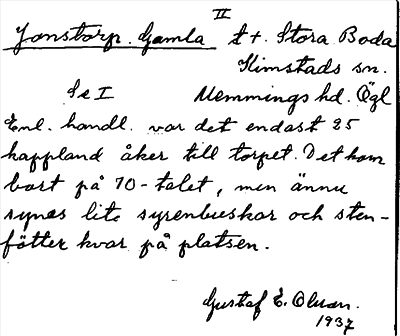 II
Jonstorp. Gamla t. Stora Boda
Kimstads sn.
Se I Memmings hd. Ögl
Enl. handl. var det endast 25
kappland åker till torpet. Det kom
bort på 70-talet, men ännu
synas lite syrenbuskar och sten-
fötter kvar på platsen.
Gustaf E. Olsson.
1937